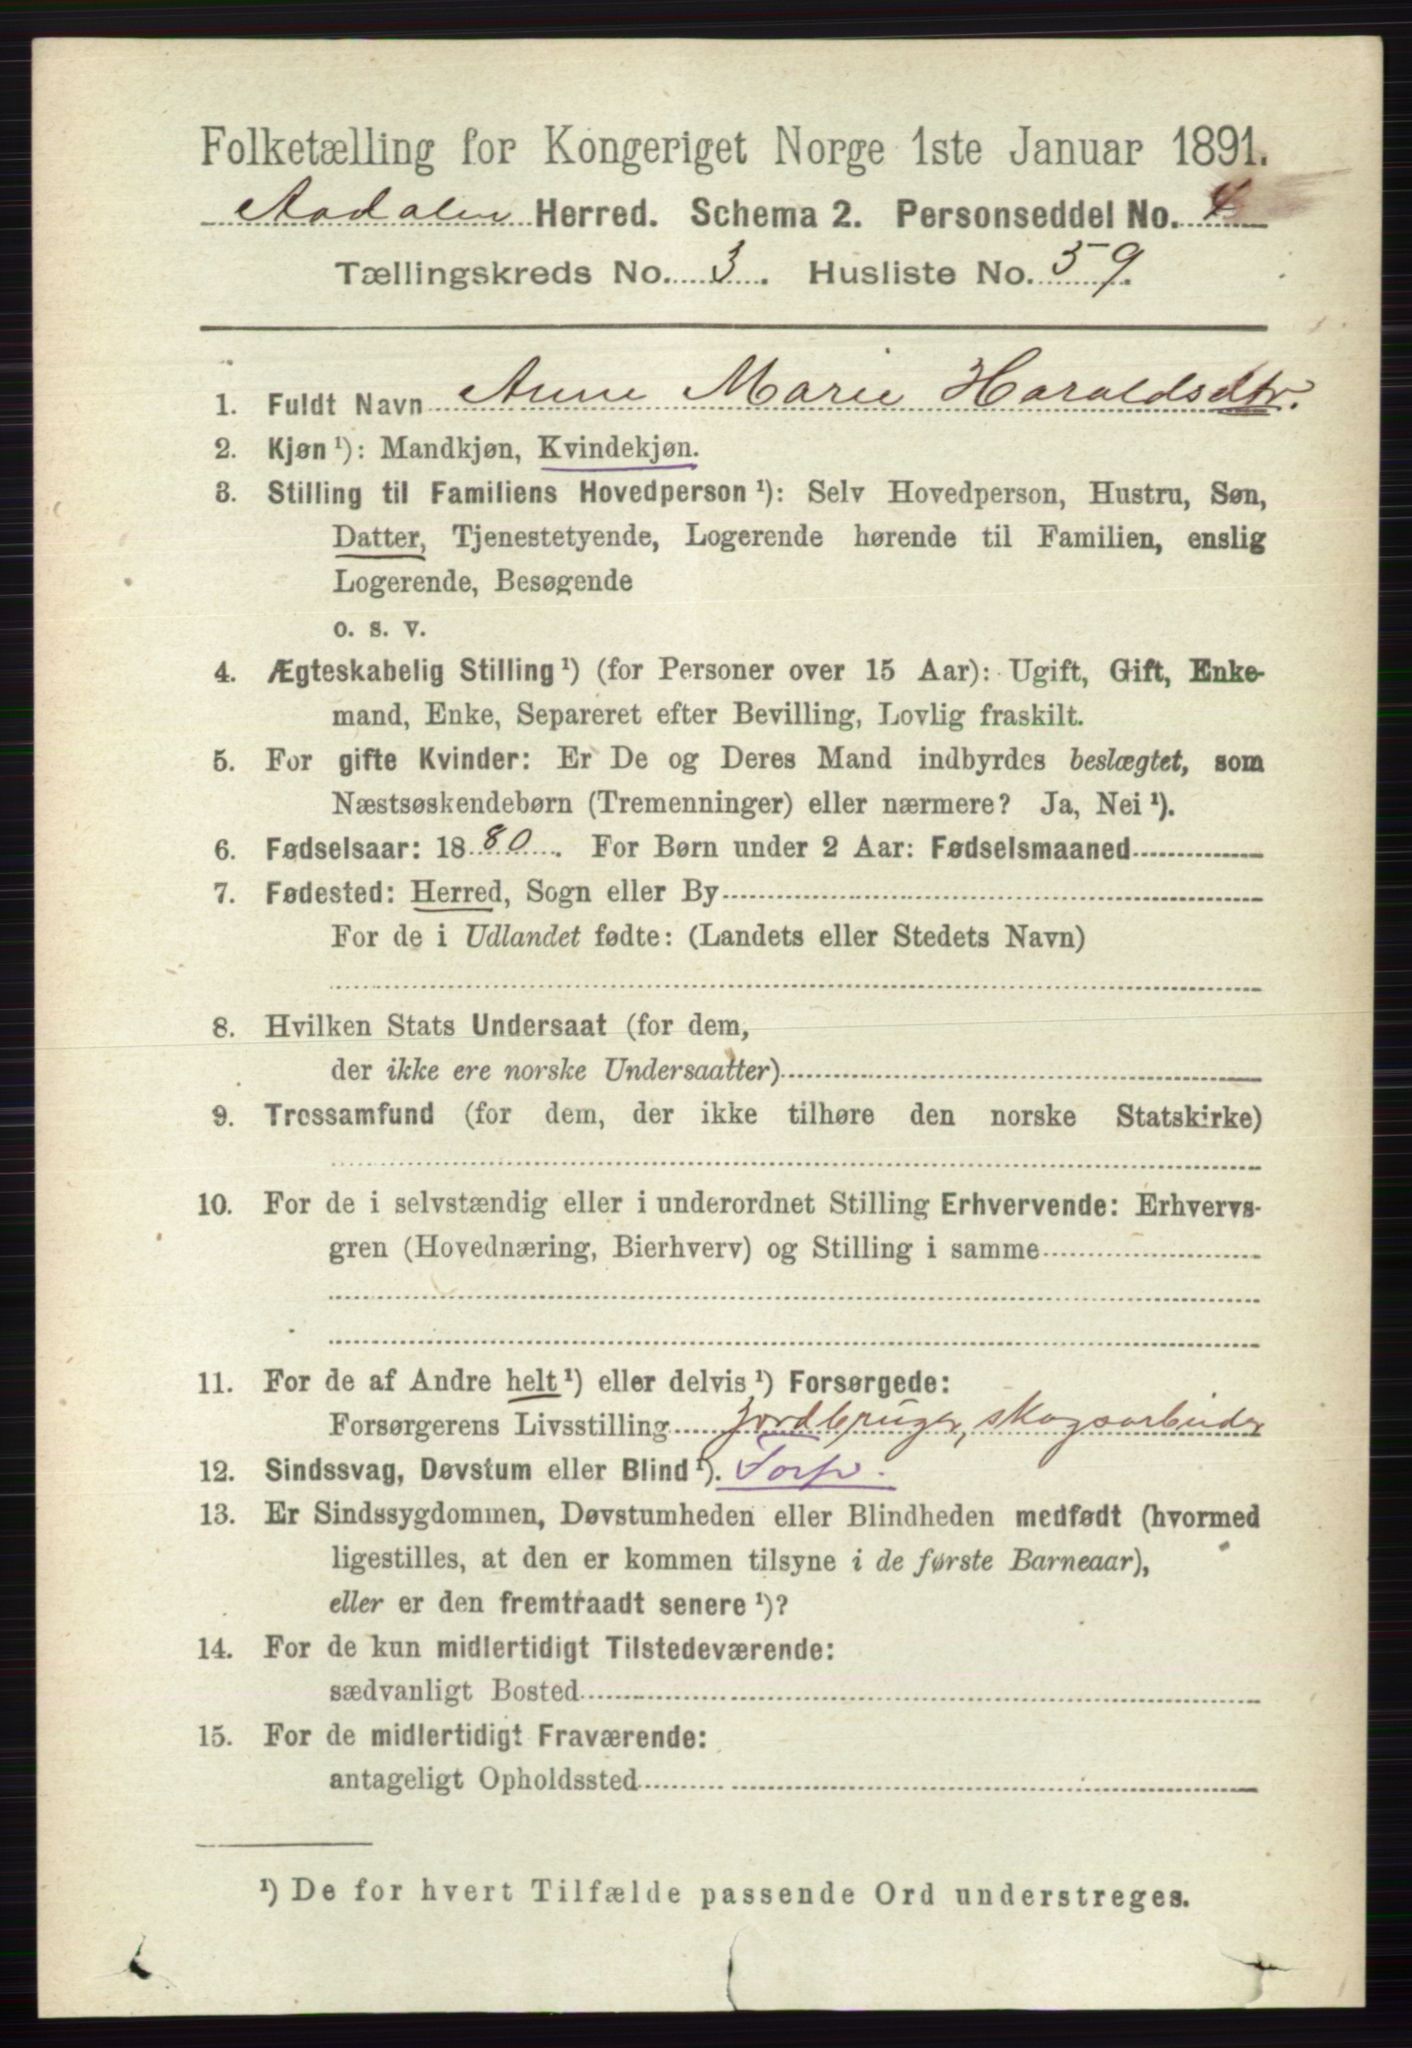 Folketælling for Kongeriget Norge 1ste Januar 1891.
Aadalen Herred. Schema 2. Personseddel No. 4
Tællingskreds No. 3. Husliste No. 59.
1. Fuldt Navn Anne Marie Haraldsdtr.
2. Kjøn ¹): Mandkjøn, Kvindekjøn.
3. Stilling til Familiens Hovedperson ¹): Selv Hovedperson, Hustru, Søn,
Datter, Tjenestetyende, Logerende hørende til Familien, enslig
Logerende, Besøgende
o. s. v.
4. Ægteskabelig Stilling ¹) (for Personer over 15 Aar): Ugift, Gift, Enke-
mand, Enke, Separeret efter Bevilling, Lovlig fraskilt.
5. For gifte Kvinder: Er De og Deres Mand indbyrdes beslægtet, som
Næstsøskendebørn (Tremenninger) eller nærmere? Ja, Nei ¹).
6. Fødselsaar: 1880. For Børn under 2 Aar: Fødselsmaaned
7. Fødested: Herred, Sogn eller By
For de i Udlandet fødte: (Landets eller Stedets Navn)
8. Hvilken Stats Undersaat (for dem,
der ikke ere norske Undersaatter)
9. Trossamfund (for dem, der ikke tilhøre den norske Statskirke)
10. For de i selvstændig eller i underordnet Stilling Erhvervende: Erhvervs-
gren (Hovednæring, Bierhverv) og Stilling i samme
11. For de af Andre helt ¹) eller delvis ¹) Forsørgede:
Forsørgerens Livsstilling Jordbruger, skogsarbeider
12. Sindssvag, Døvstum eller Blind ¹).
13. Er Sindssygdommen, Døvstumheden eller Blindheden medfødt (hvormed
ligestilles, at den er kommen tilsyne i de første Barneaar),
eller er den fremtraadt senere ¹)?
14. For de kun midlertidigt Tilstedeværende:
sædvanligt Bosted
15. For de midlertidigt Fraværende:
antageligt Opholdssted
¹) De for hvert Tilfælde passende Ord understreges.